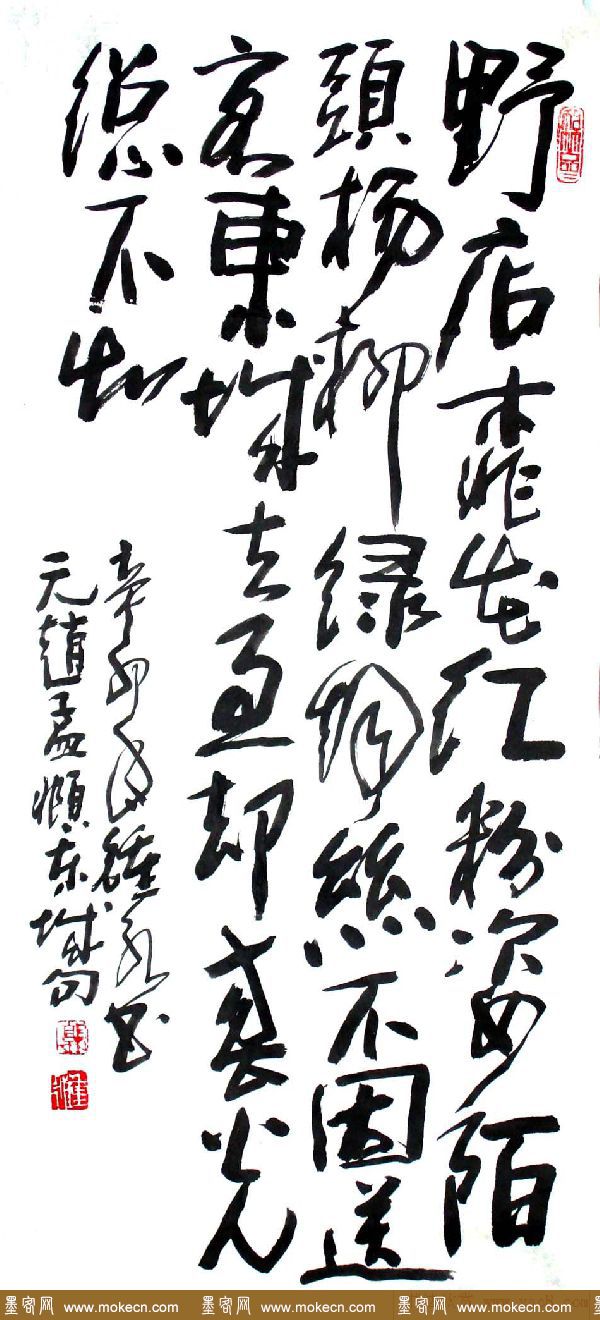 野店桃花红粉姿陌
頭楊柳绿烟絲不因送
客東城去過却春光
總不知
辛卯年 书
元趙孟頫东城句
墨客网 www.mokecn.com 墨客网 www.mokecn.com 墨客网 www.mokecn.com